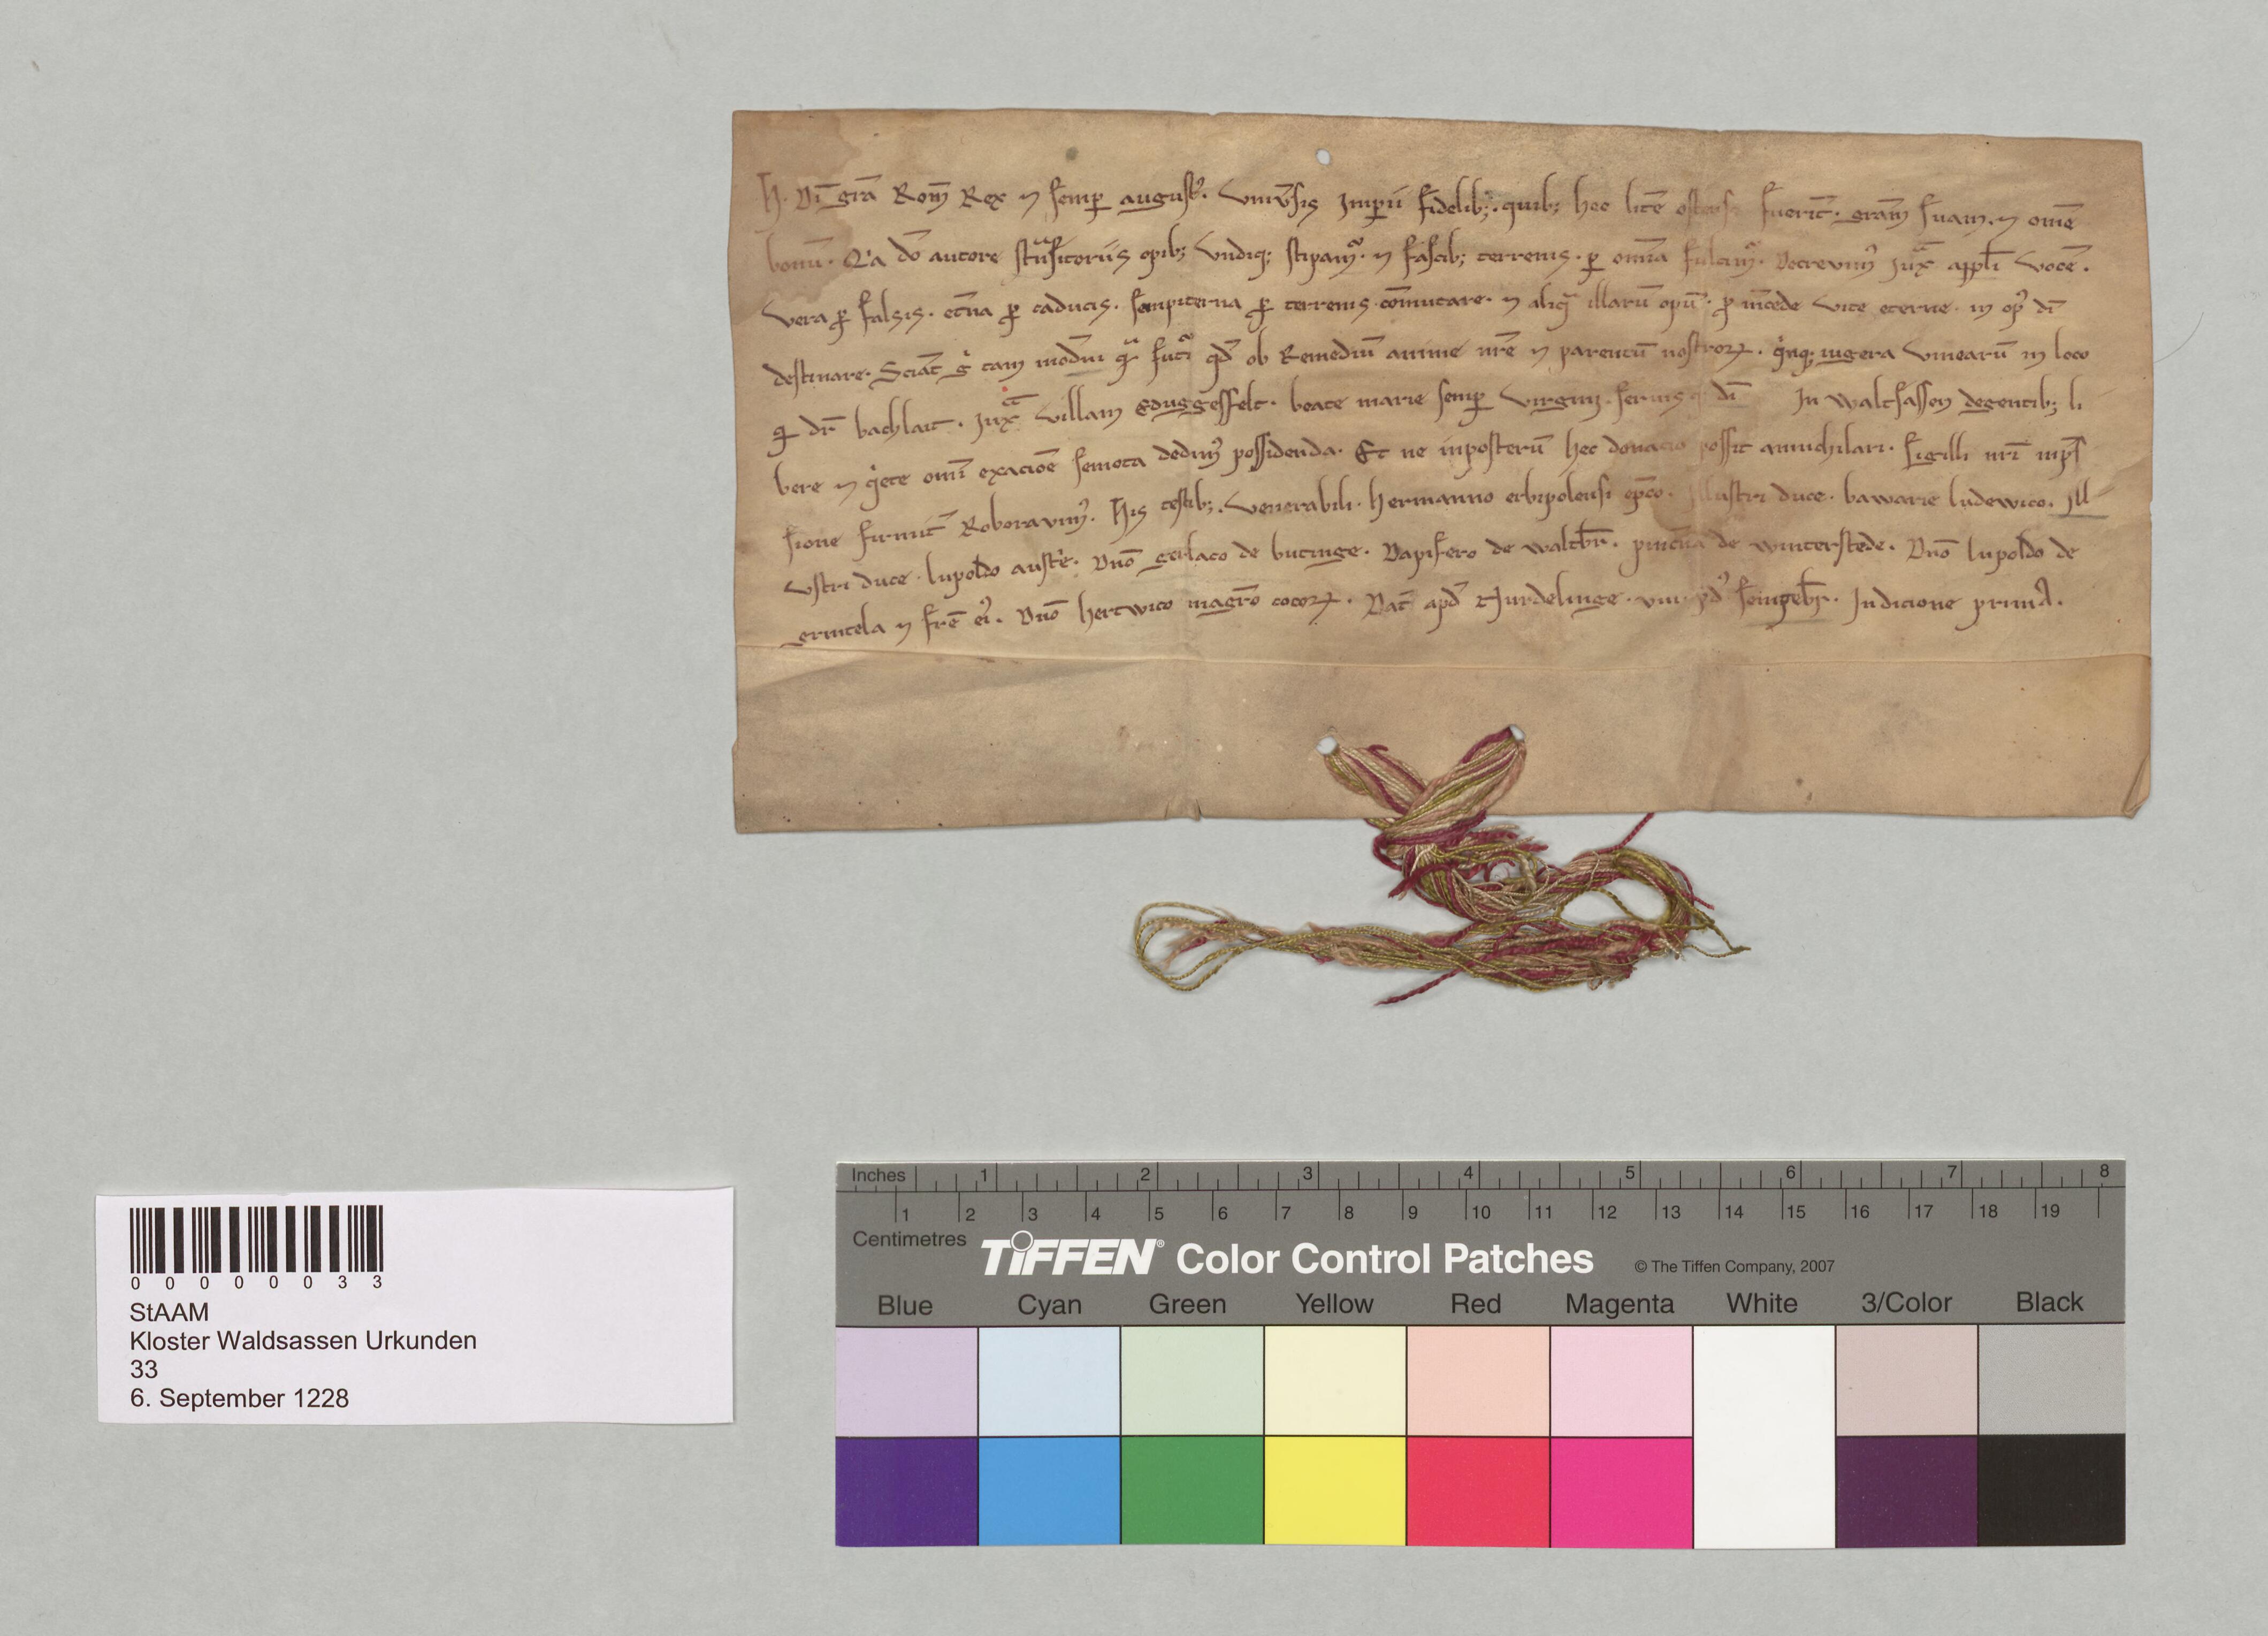 H. Dī grā Rom̄ Rex ⁊ semp̱ august᷒. Univ̄sis Imp̱ii fidelib;. quib; hec lit̄e ostense fuerīt. grām suam. ⁊ om̄e
bonū. Qͥa dō autore stᷓnsitoriis opib; undiq; stipamᷣ. ⁊ fascib; terrenis. p̱ om̄ia fulcimᷣ. Decrevimꝰ Iuxᷓ appłi vocē.
vera ꝓ falsis. et̄na ꝓ caducis. sempiterna ꝓ terrenis. cōmutare. ⁊ aliqᷓ illarū opū. ꝓ m̄cede vite eterne. in opꝰ dī
destinare. Sciāt gͦ tam mod̄ni qᷓ futᷓi qd̄ ob Remediū anime nr̄e ⁊ parentū nostroꝝ. qͥnq; iugera vinearū in loco
qͥ dr̄ bachlait. Iuxᷓ villam Eduggesfelt. beate marie semp̱ virginis. servis q; dī In waltsassen degentib; li
bere ⁊ qͥete om̄i exaciōe semota dedimꝰ possidenda. Et ne inposterū hec donacio possit annichilari. sigilli nr̄i inp̄s
sione firmit̄ Roboravimꝰ. His testib;. venerabili. hermanno erbipolensi ep̄co. Illustri duce. bawarie ludewico. Ill
ustri duce. lupoldo aust̄e. Dn̄o gerlaco de butinge. Dapifero de waltbr̄. pinc̄na de winterstede. Dn̄o lupoldo de
ermtela ⁊ fr̄e eiꝰ. Dn̄o hertwico magr̄o cocoꝝ. Dat̄ apd̄ Nurdelinge. viii. yd̄ seinptebr̄. Indicione prima.
0 0 0 0 0 0 3 3
StAAM
Kloster Waldsassen Urkunden
33
6. September 1228
Inches 1 2 3 4 5 6 7 8
1 2 3 4 5 6 7 8 9 10 11 12 13 14 15 16 17 18 19
Centimetres
TIFFEN® Color Control Patches © The Tiffen Company, 2007
Blue Cyan Green Yellow Red Magenta White 3/Color Black